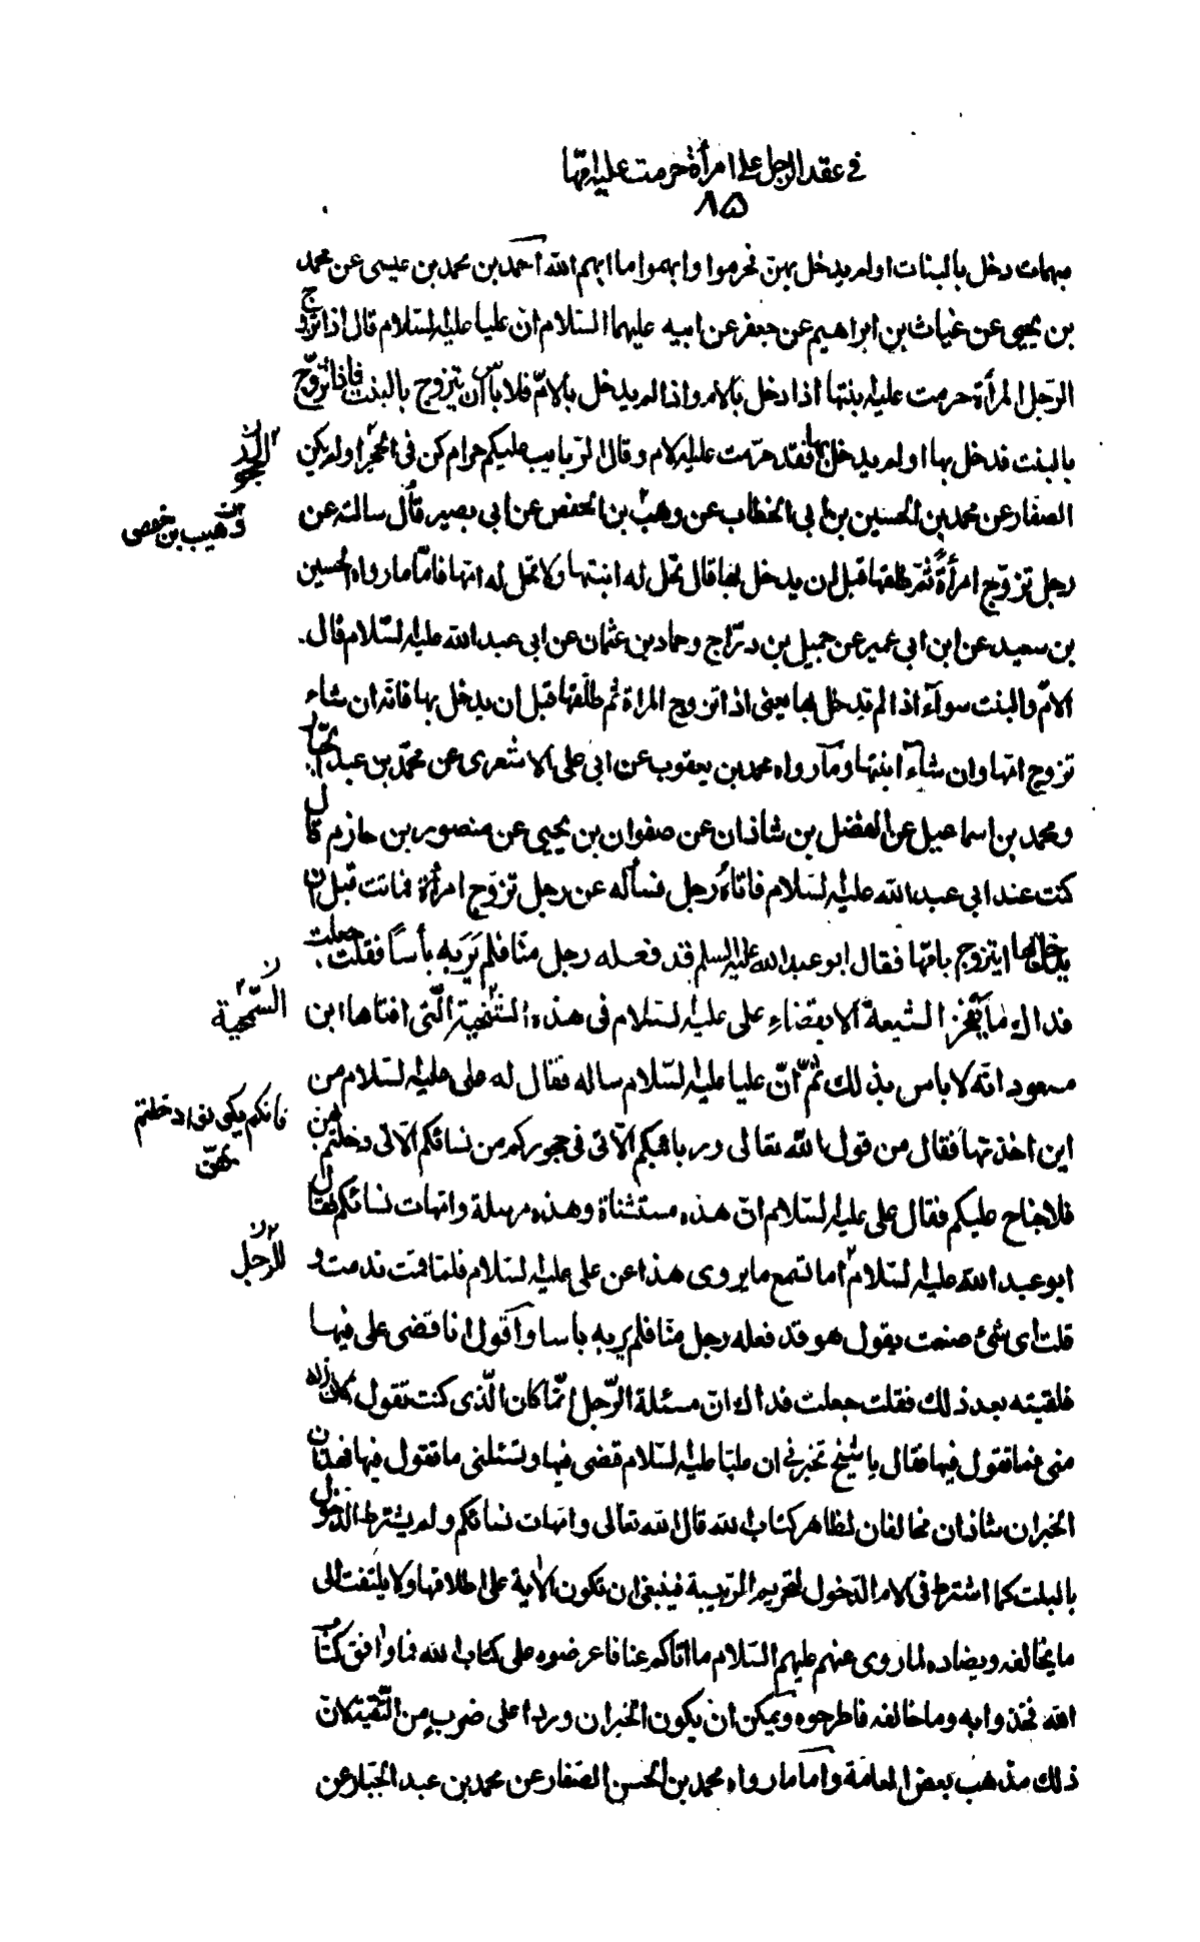 في عقد الرجل على امرأة حرمت عليه امّها
٨٥
مبهمات دخل بالبنات اولم يدخل بهن فحرموا وابهموا ما ابهم الله احمد بن محمد بن عيسى عن محمد
بن يحيى عن غياث بن ابراهيم عن جعفر عن ابيه عليهما السّلام انّ عليا عليه السّلام قال اذا تزوج
الرّجل المرأة حرمت عليه بنتها اذا دخل بالام واذا لم يدخل بالامّ فلا بأس ان يتزوج بالبنت فاذا تزوّج
بالبنت فدخل بها اولم يدخل بها فقد حرّمت عليه الام وقال الربايب عليكم حرام كن في الحجر اولم يكن
الحجور ن
الصفار عن محمد بن الحسين بن ابي الخطاب عن وهب بن الحفص عن ابي بصير قال سالته عن
وهيب بن حفص
رجل تزوّج امرأةً ثمّ طلقها قبل ان يدخل بها قال تحل له ابنتها ولا تحل له امّها فامّا ما رواه الحسين
بن سعيد عن ابن ابي عمير عن جميل بن درّاج وحماد بن عثمان عن ابي عبد الله عليه السّلام قال
الامّ والبنت سوآء اذا لم يدخل بها يعنى اذا تزوج المراة ثم طلّقها قبل ان يدخل بها فانّه ان شاء
تزوج امّها وان شآء ابنتها ومآ رواه محمد بن يعقوب عن ابي على الاشعرى عن محمّد بن عبد الجبّار
ومحمد بن اسماعيل عن الفضل بن شاذان عن صفوان بن يحيى عن منصور بن حازم قال
كنت عند ابي عبد الله عليه السّلام فاتاهُ رجل فسأله عن رجل تزوّج امرأة فماتت قبل ان
يدخل بها ايتزوج بامّها فقال ابو عبد الله عليه السلم قد فعله رجل منّا فلم يَرَ به بأساً فقلت جعلت
فداك مَا تفخر الشيعة الا بقضاءِ على عليه السّلام في هذه الشمخية الّتى افتاها ابن
السّمجية ن
مسعود انّه لا باس بذلك ثمّ انّ عليا عليه السّلام ساله فقال له على عليه السّلام من
اين اخذتها فقال من قول الله تعالى وربائبكم الّاتى في حجوركم من نسائكم الّاتى دخلتم بهن
فان لم يكونوا دخلتم
بهنّ
فلا جناح عليكم فقال على عليه السّلام انّ هذه مستثناة وهذه مرسلة وامّهات نسائكم فقال
ابو عبد الله عليه السّلام اما تسمع ما يروى هذا عن على عليه السّلام فلمّا قمت ندمت و
للرّجل ن
قلت اى شئ صنعت يقول هو قد فعله رجل منّا فلم ير به باسا وأقول انا قضى على فيها
فلقيته بعد ذلك فقلت جعلت فداك انّ مسئلة الرّجل انّما كان الّذى كنت تقول كان زلة
منى فما تقول فيها فقال يا شيخ تخبرنى ان عليّا عليه السّلام قضى فيها وتسئلنى ما تقول فيها فهذان
الخبران شاذان مخالفان لظاهر كتاب الله قال الله تعالى وامّهات نسائكم ولم يشترط الدّخول
بالبنت كما اشترط في الام الدّخول لتحريم الرّبيبة فينبغى ان تكون الاية على اطلاقها ولا يلتفت الى
ما يخالفه ويضاده لما روى عنهم عليهم السّلام ما اتاكم عنا فاعرضوه على كتاب الله فما وافق كتاب
الله فخذوا به وما خالفه فاطرحوه ويمكن ان يكون الخبران وردا على ضربٍ من التّقية لانّ
ذلك مذهب بعض العامة وامّا ما رواه محمد بن الحسن الصّفار عن محمد بن عبد الجبّار عن